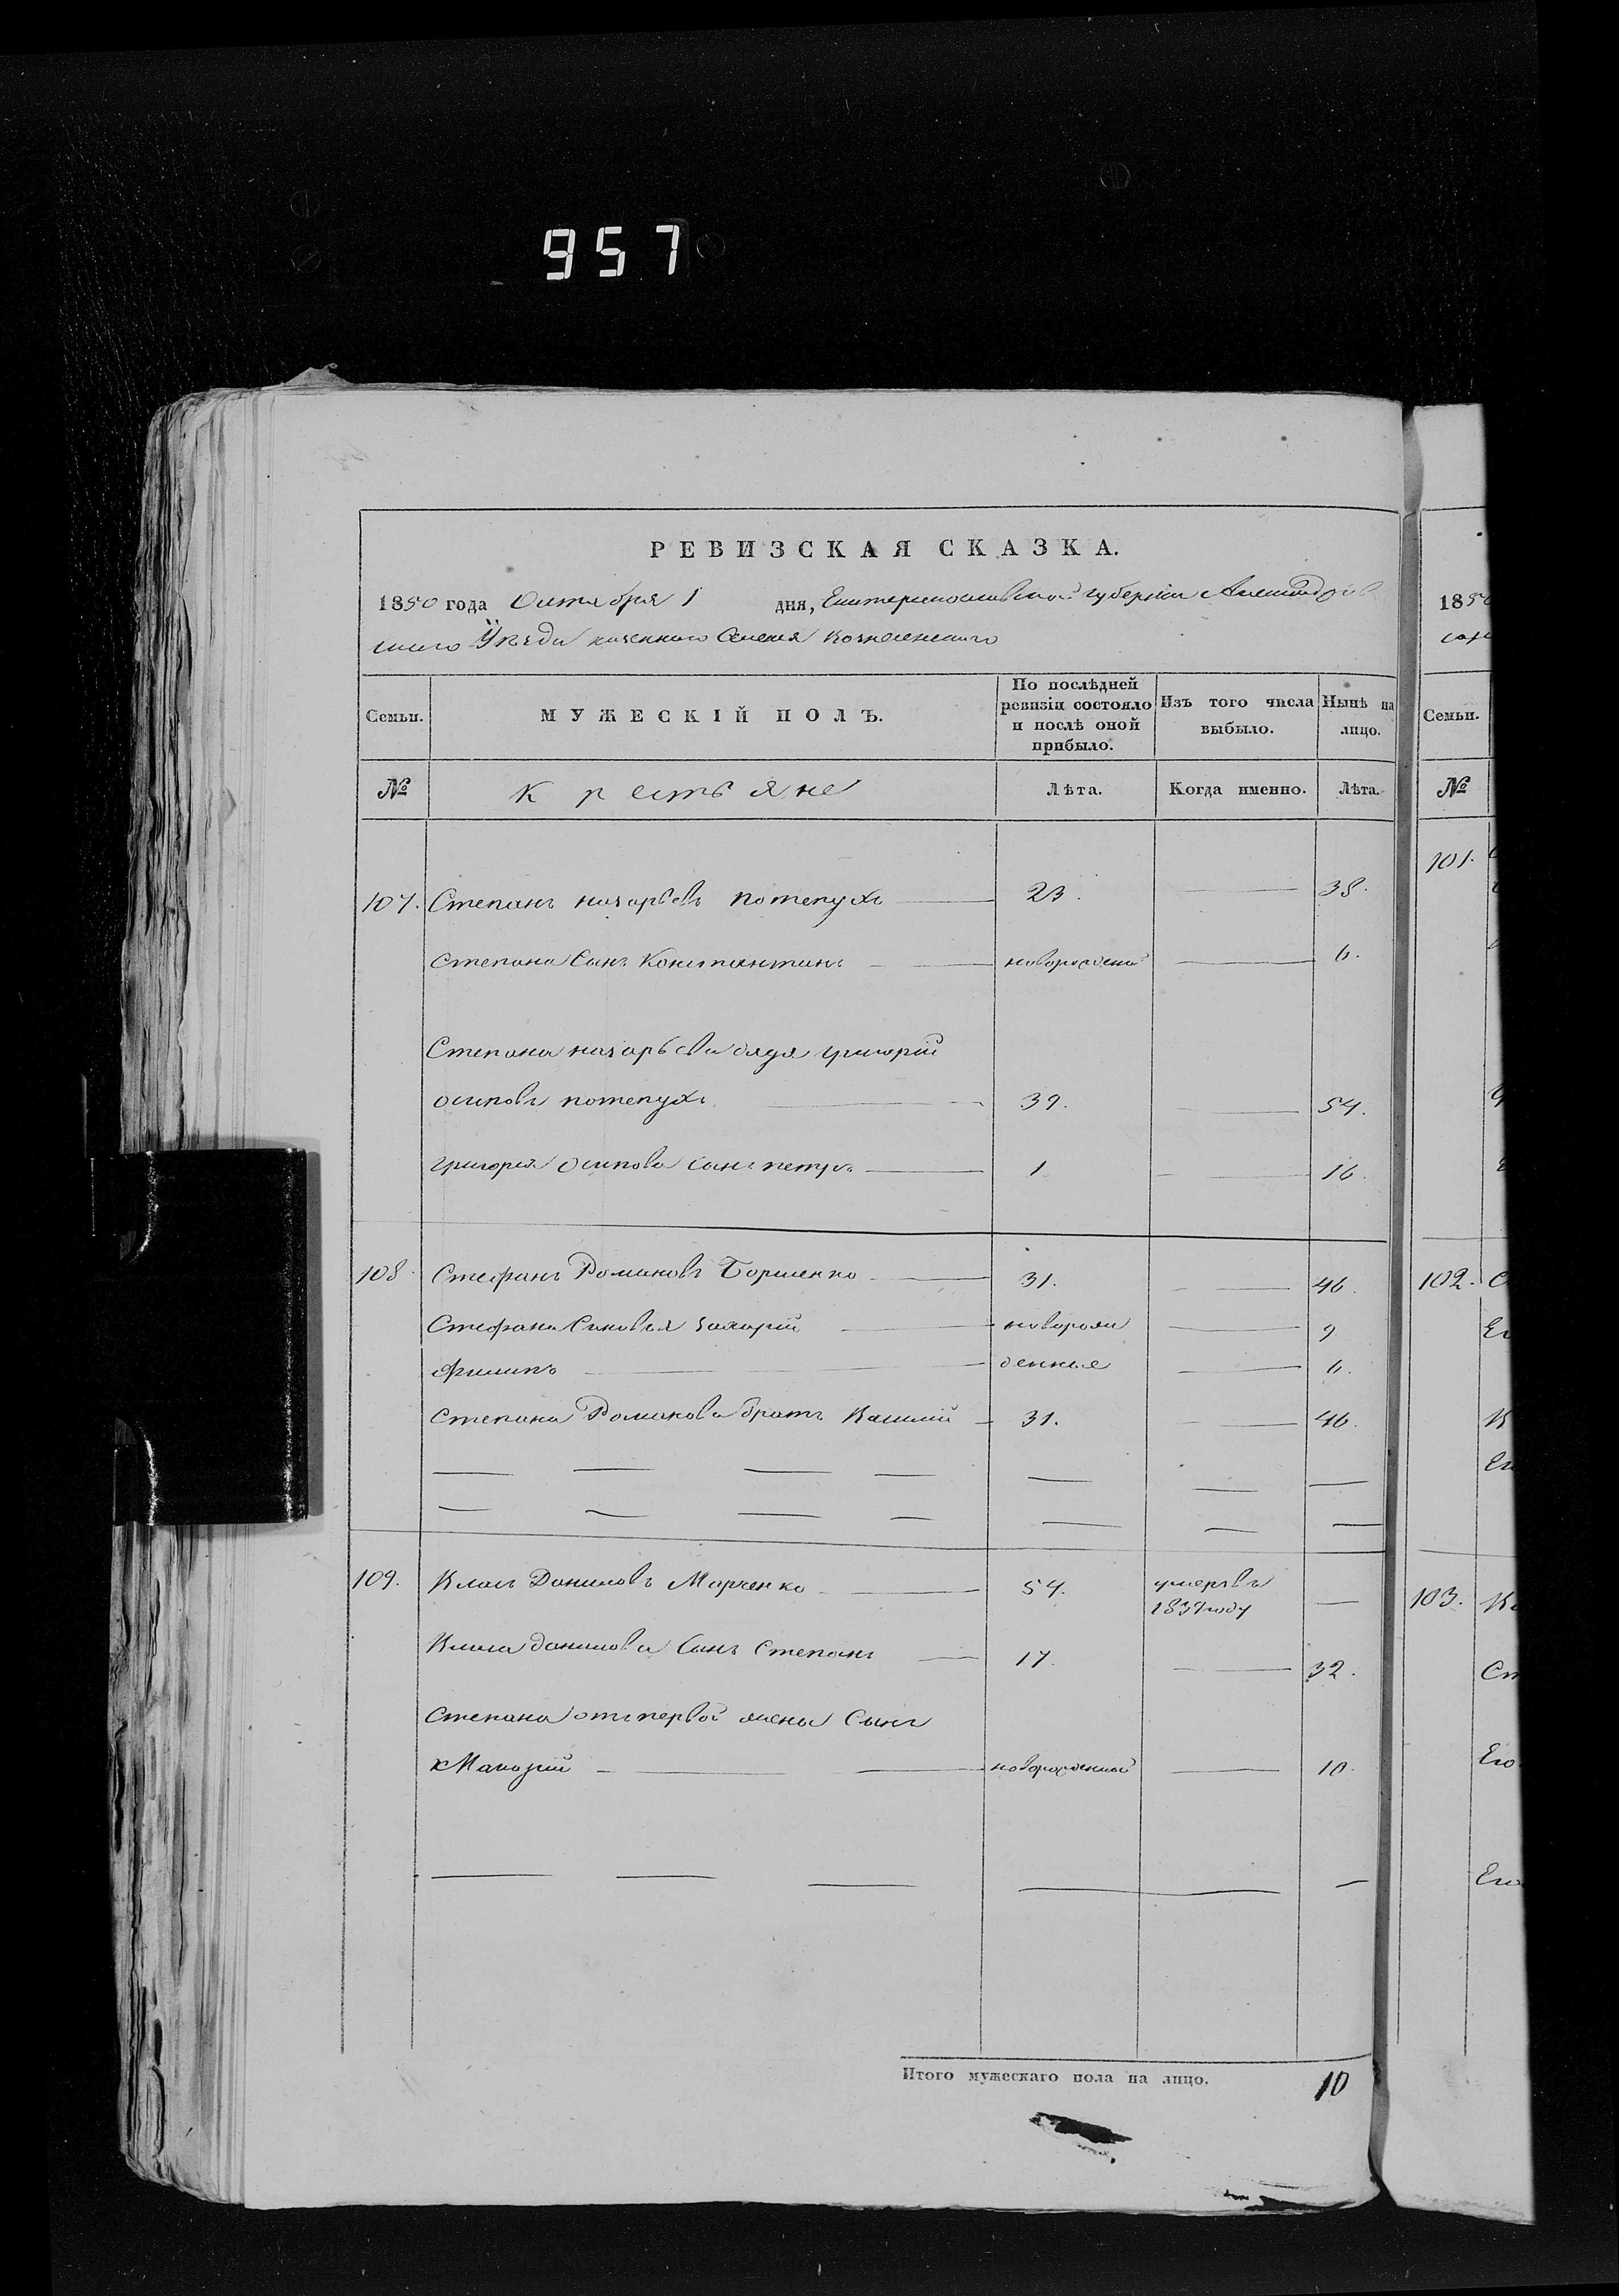 957
РЕВИЗСКАЯ СКАЗКА.
1850 года Октября 1 дня, Екатеринославской губернiи Александров
скаго Уѣзда казеннаго Селенiя Вознесенскаго
Семьи. МУЖЕСКIЙ ПОЛЪ. По послѣдней ревизiи состояло и послѣ оной прибыло. Изъ того числа выбыло. Нынѣ на лицо.
№ Крестьяне Лѣта. Когда именно. Лѣта.
107. Степанъ назарьевъ потепухъ 23. 38.
Степана Сынъ Константинъ новорожденной 6.
Степана назарьева дядя григорiй
осиповъ потепухъ 39. 54.
григорiя осипова сынъ петръ 1 16.
108. Стефанъ Романовъ Борщенко 31. 46.
Стефана Сыновья захарiй новорож 9
Филипъ денные 6.
Степана Романова братъ Касиянъ 31. 46.
109. Климъ Даниловъ Марченко 54. умеръ въ
1839 году
Клима данилова Сынъ Степанъ 17. 32.
Степана отъ первой жены Сынъ
Макарiй новорожденный 10.
Итого мужескаго пола на лицо. 10
1850
Семьи.
№
101.
102.
Ег
103.
Ст
Его
Его